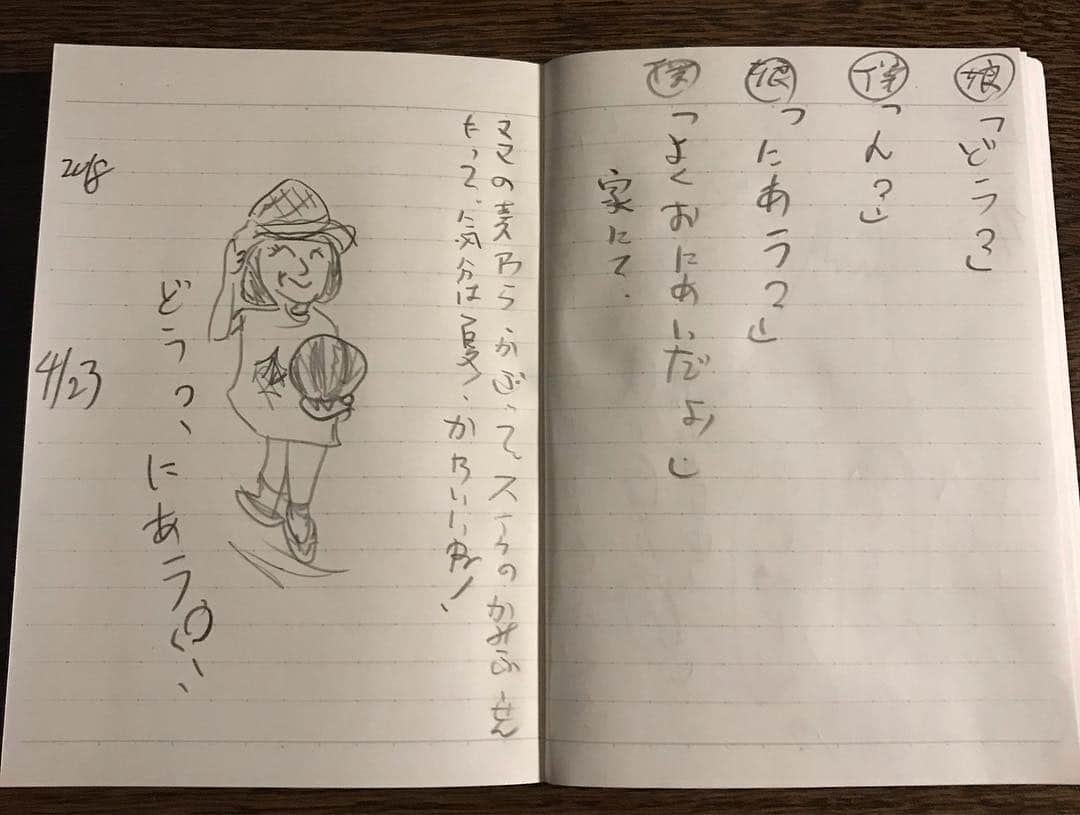 娘「どう?」
僕「ん?」
娘「にあう?」
僕「よくおにあいだよ」
家にて.
ママの麦わらかぶって、スイカのかみふうせん
もって、気分は夏!、かわいいね!
どう?、にあう?
2018
4/23